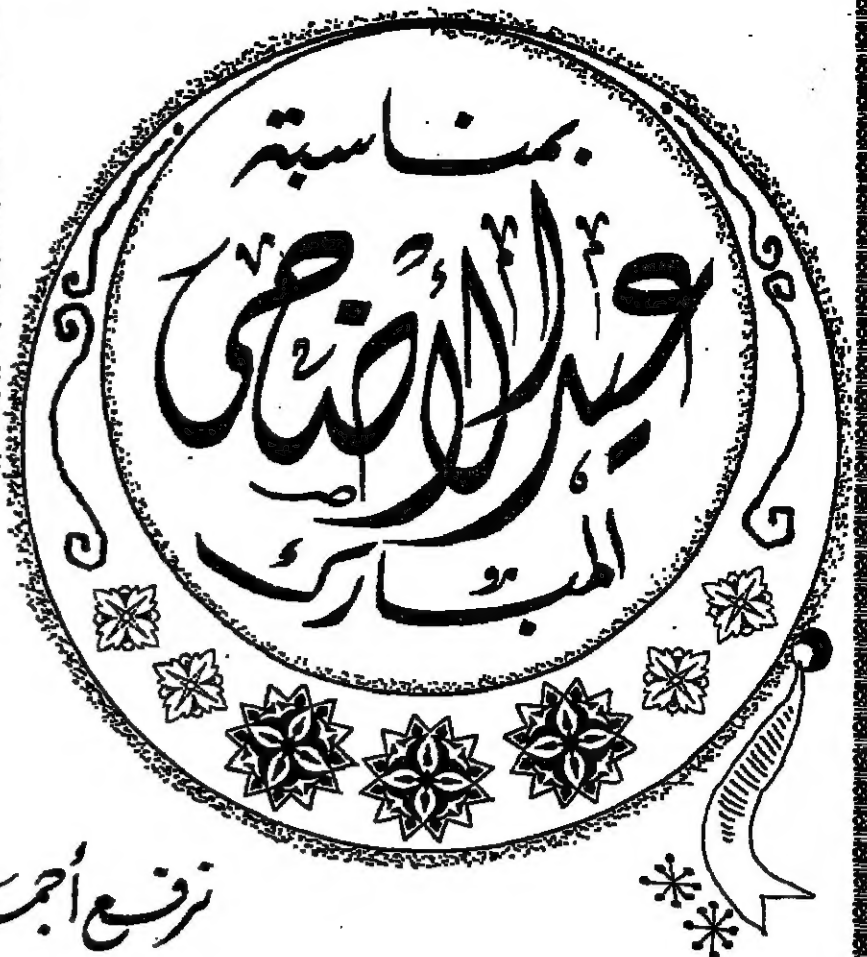 بمناسبة
عيد الأضحى
المبارك
نرفع